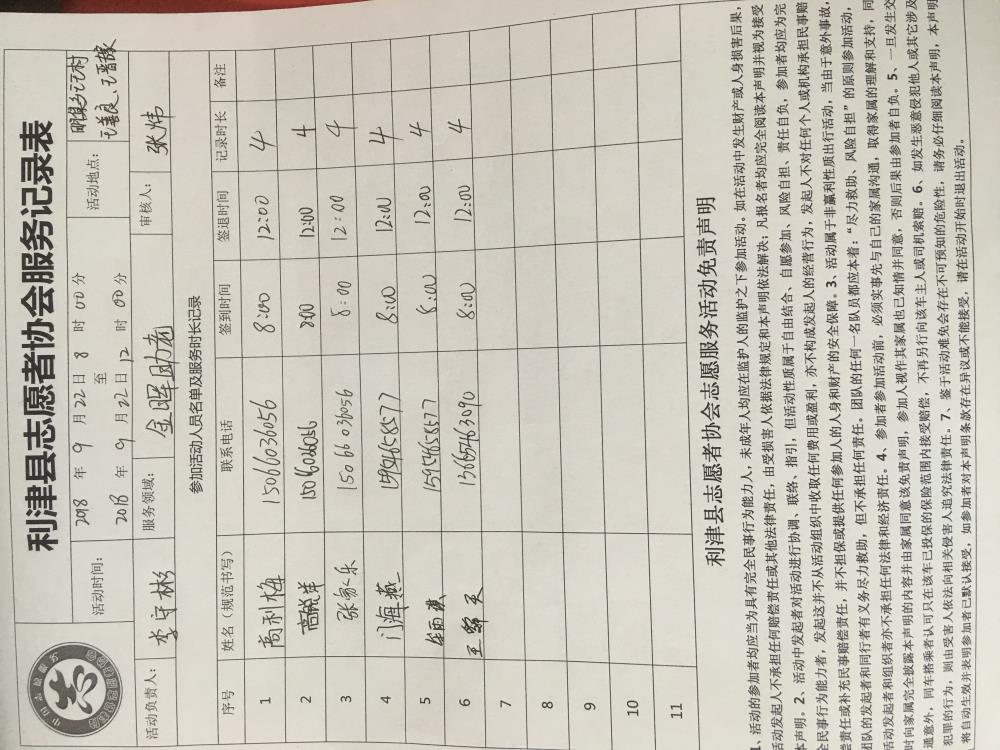 利津县志愿者协会服务记录表
活动时间： 2018 年 9 月 22 日 8 时 00 分 至 2018 年 9 月 22 日 12 时 00 分 活动地点：
活动负责人： 李守彬 服务领域： 金晖助老 审核人： 张炜
参加活动人员名单及服务时长记录
序号 姓名（规范书写） 联系电话 签到时间 签退时间 记录时长 备注
1 高利梅 15066036056 8:00 12:00 4
2 高晓洋 15066036056 8:00 12:00 4
3 张家乐 15066036056 8:00 12:00 4
4 门海燕 15954658577 8:00 12:00 4
5 15954658577 8:00 12:00 4
6 王 13665463090 8:00 12:00 4
7
8
9
10
11
利津县志愿者协会志愿服务活动免责声明
1、活动的参加者均应当为具有完全民事行为能力人，未成年人均应在监护人的监护之下参加活动。如在活动中发生财产或人身损害后果，
活动发起人不承担任何赔偿责任或其他法律责任，由受损害人依据法律规定和本声明依法解决；凡报名者均应完全阅读本声明并视为接受
本声明。2、活动中发起者对活动进行协调、联络、指引，但活动性质属于自由结合、自愿参加、风险自担、责任自负，参加者均应为完
全民事行为能力者，发起这并不从活动组织中收取任何费用或盈利，亦不构成发起人的经营行为，发起人不对任何个人或机构承担民事赔
偿责任或补充民事赔偿责任，并不担保或提供任何参加人的人身和财产的安全保障。3、活动属于非赢利性质出行活动，当由于意外事故，
团队的发起者和同行者有义务尽力救助，但不承担任何责任。团队的任何一名队员都应本着：“尽力救助、风险自担”的原则参加活动，
活动发起者和组织者亦不承担任何法律和经济责任。4、参加者参加活动前，必须实事先与自己的家属沟通，取得家属的理解和支持，同
时向家属完全披露本声明的内容并由家属同意该免责声明，参加人视作其家属也已知情并同意，否则后果由参加者自负。5、一旦发生交
通意外，同车搭乘者认可只在该车已投保的保险范围内接受赔偿，不再另行向该车主人或司机索赔。6、如发生恶意侵犯他人或其它涉及
犯罪的行为，则由受害人依法向相关侵害人追究法律责任。7、鉴于活动难免会存在不可预知的危险性，请务必仔细阅读本声明，本声明
将自动生效并表明参加者已默认接受，如参加者对本声明条款存在异议或不能接受，请在活动开始时退出活动。